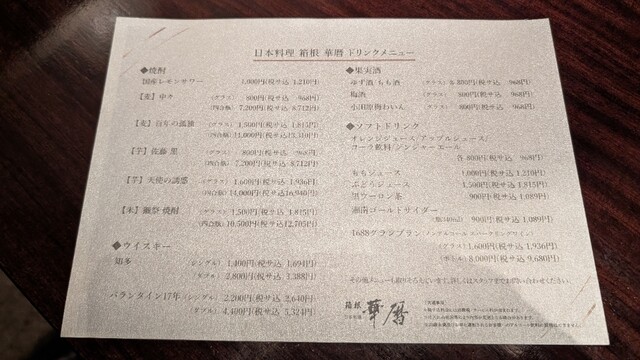 日本料理 箱根 華暦 ドリンクメニュー
◆焼酎
国産レモンサワー 1,000円(税サ込 1,210円)
【麦】中々 (グラス) 800円(税サ込 968円)
(四合瓶) 7,200円(税サ込 8,712円)
【麦】百年の孤独 (グラス) 1,500円(税サ込 1,815円)
(四合瓶) 11,000円(税サ込 13,310円)
【芋】佐藤 黒 (グラス) 800円(税サ込 968円)
(四合瓶) 7,200円(税サ込 8,712円)
【芋】天使の誘惑 (グラス) 1,600円(税サ込 1,936円)
(四合瓶) 14,000円(税サ込 16,940円)
【米】獺祭 焼酎 (グラス) 1,500円(税サ込 1,815円)
(四合瓶) 10,500円(税サ込 12,705円)
◆ウイスキー
知多 (シングル) 1,400円(税サ込 1,694円)
(ダブル) 2,800円(税サ込 3,388円)
バランタイン17年 (シングル) 2,200円(税サ込 2,640円)
(ダブル) 4,400円(税サ込 5,324円)
◆果実酒
ゆず酒/もも酒 (グラス) 各 800円(税サ込 968円)
梅酒 (グラス) 800円(税サ込 968円)
小田原梅わいん (グラス) 800円(税サ込 968円)
◆ソフトドリンク
オレンジジュース/アップルジュース/
コーラ飲料/ジンジャーエール
各 800円(税サ込 968円)
ももジュース 1,000円(税サ込 1,210円)
ぶどうジュース 1,500円(税サ込 1,815円)
黒ウーロン茶 900円(税サ込 1,089円)
湘南ゴールドサイダー
900円(税サ込 1,089円)
1688グランブラン (ノンアルコール スパークリングワイン)
(グラス) 1,600円(税サ込 1,936円)
(ボトル) 8,000円(税サ込 9,680円)
その他メニューも取りそろえています。詳しくはスタッフまでお問い合わせください。
箱根 華暦